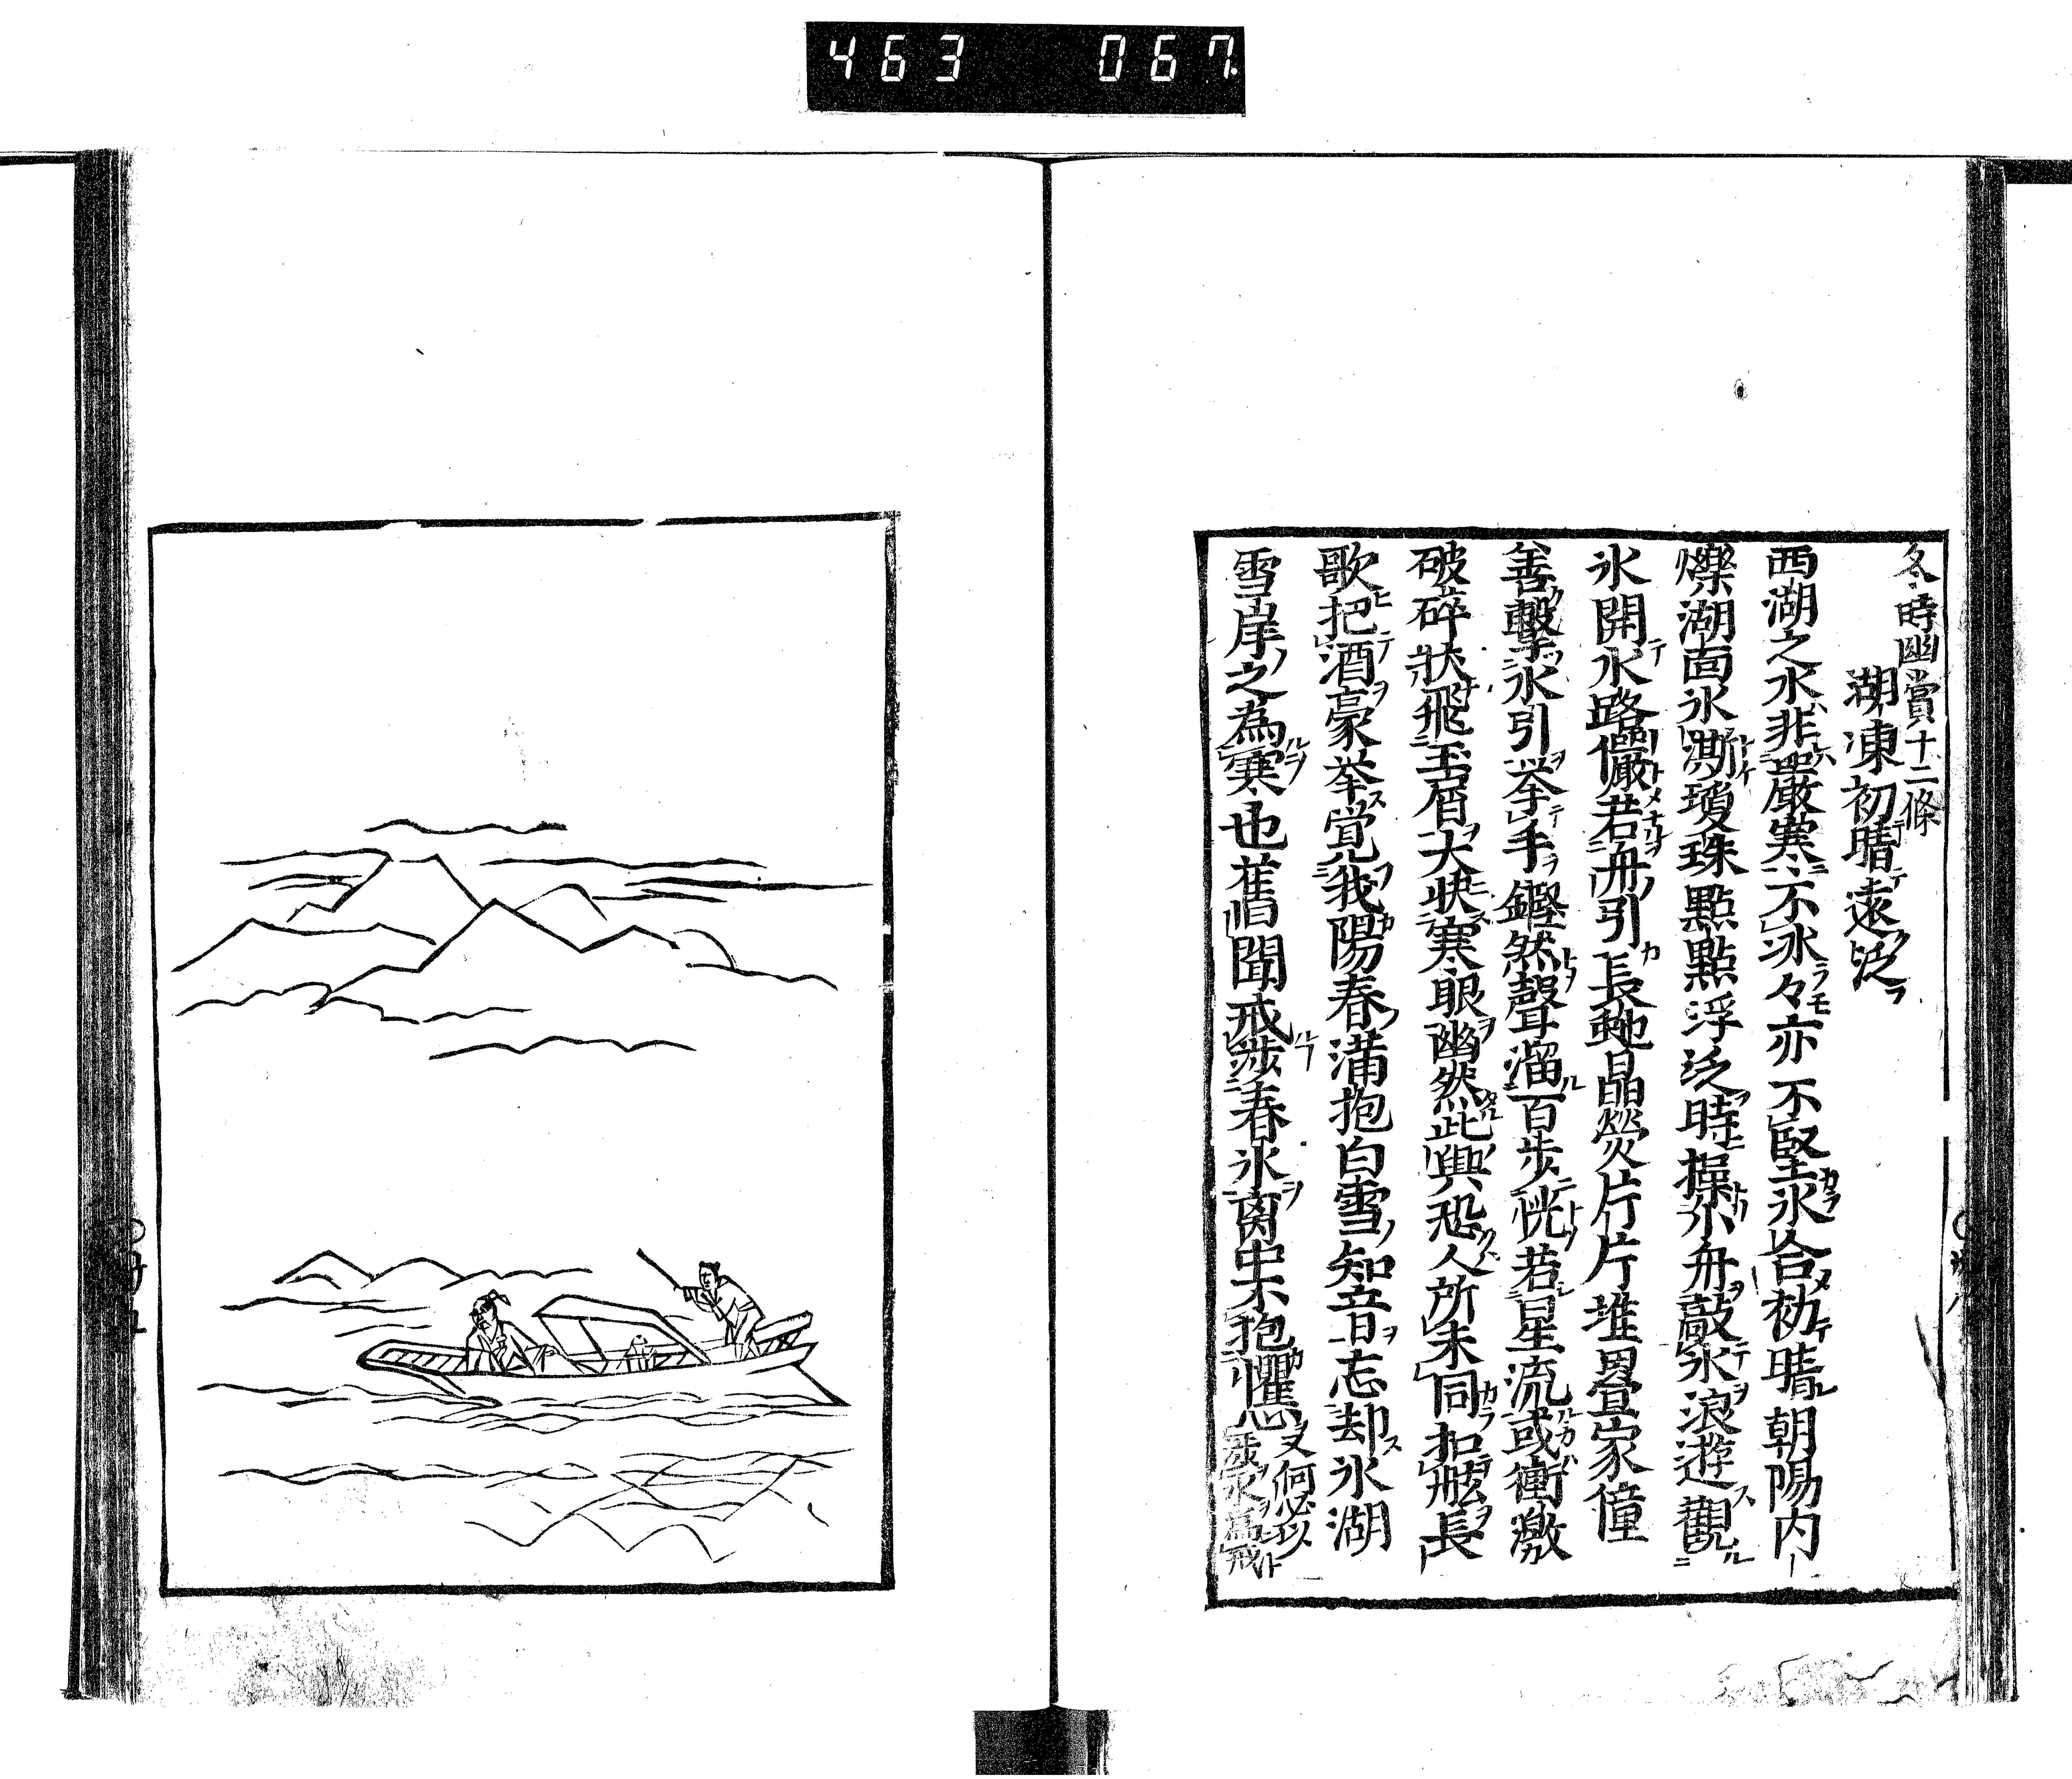 463 067
冬時幽賞十二條
湖凍初晴遠泛
西湖之水非嚴寒不冰々亦不堅氷合初晴朝陽内
爍湖面氷澌瓊珠點點浮泛時操小舟敲氷浪遊觀
氷開水路儼若舟引長虵晶熒片片堆疊家僮
善擊氷引挙手鏗然聲溜百步恍若星流或衝激
破碎狀飛玉屑大快寒眼幽然此興恐人所未同扣舷長
歌把酒豪挙覚我陽春滿抱白雪知音忘却氷湖
雪岸之為寒也舊聞戒涉春氷胡不抱懼又何必以
涉氷為戒